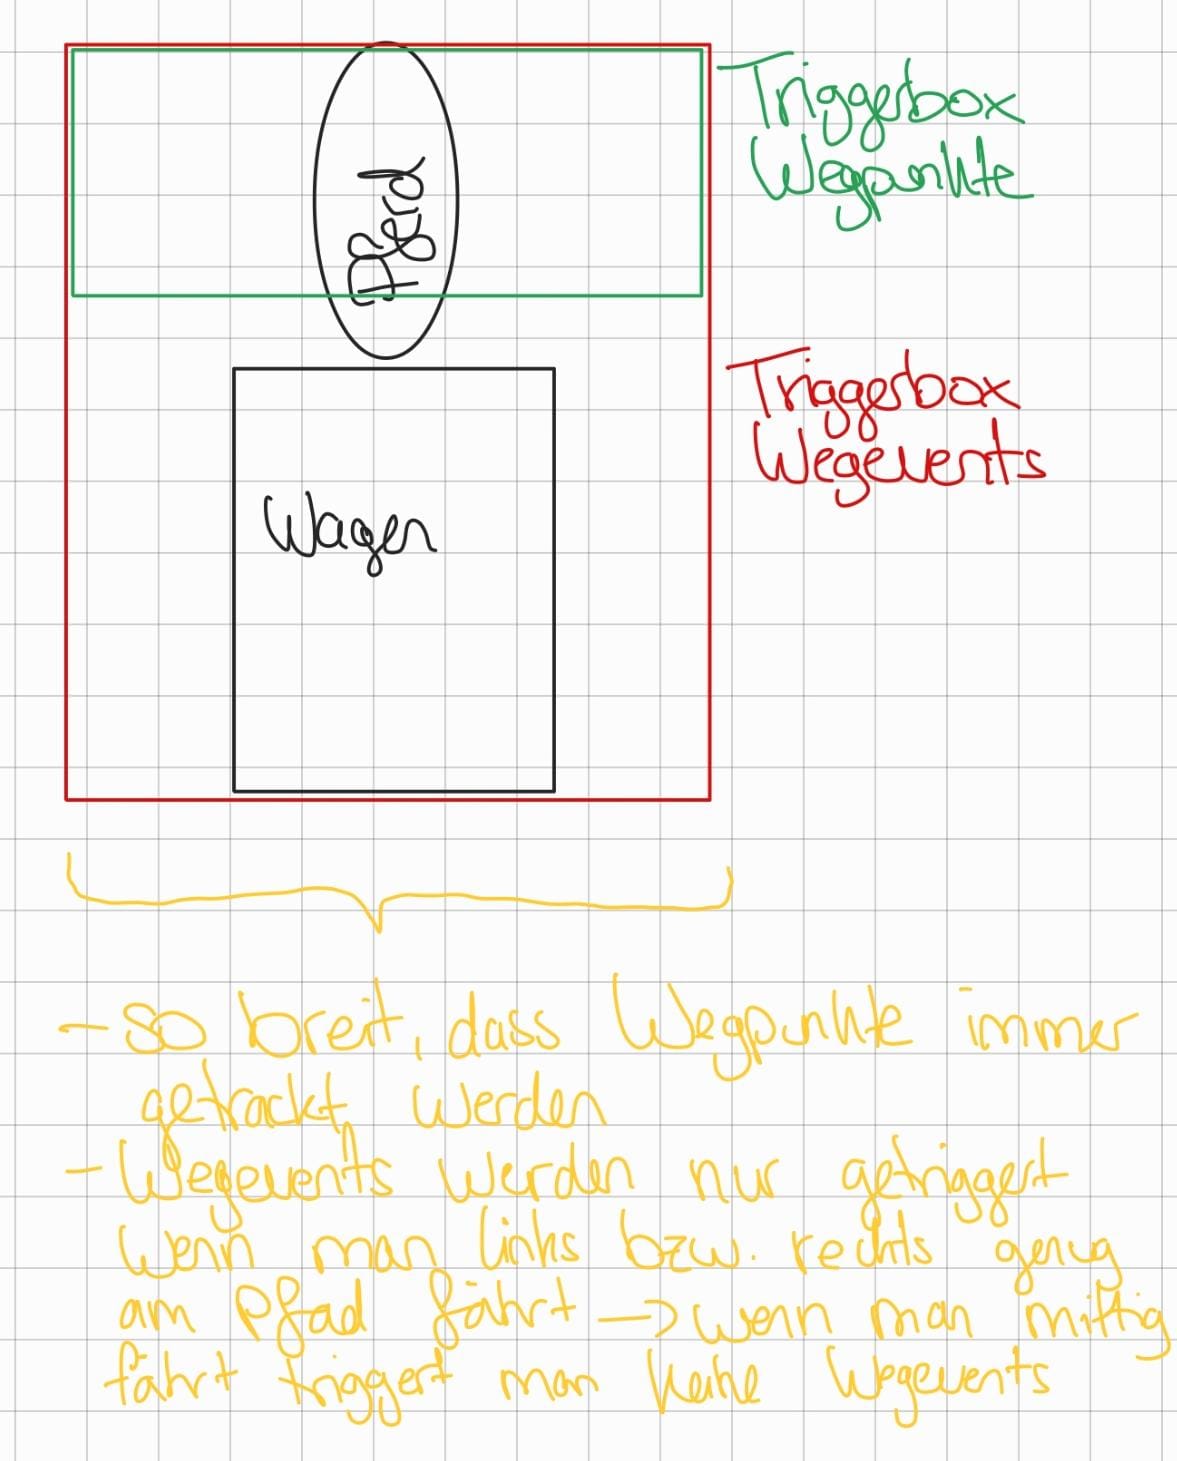 Triggerbox
Wegpunkte
Pferd
Triggerbox
Wegevents
Wagen
- so breit, dass Wegpunkte immer
getrackt werden
- Wegevents werden nur getriggert
wenn man links bzw. rechts genug
am Pfad fährt -> wenn man mittig
fährt triggert man keine Wegevents